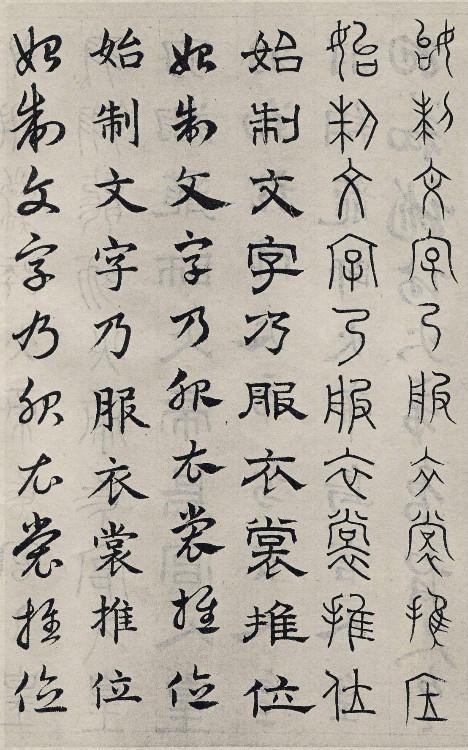 始制文字乃服衣裳推位
始制文字乃服衣裳推位
始制文字乃服衣裳推位
始制文字乃服衣裳推位
始制文字乃服衣裳推位
始制文字乃服衣裳推位